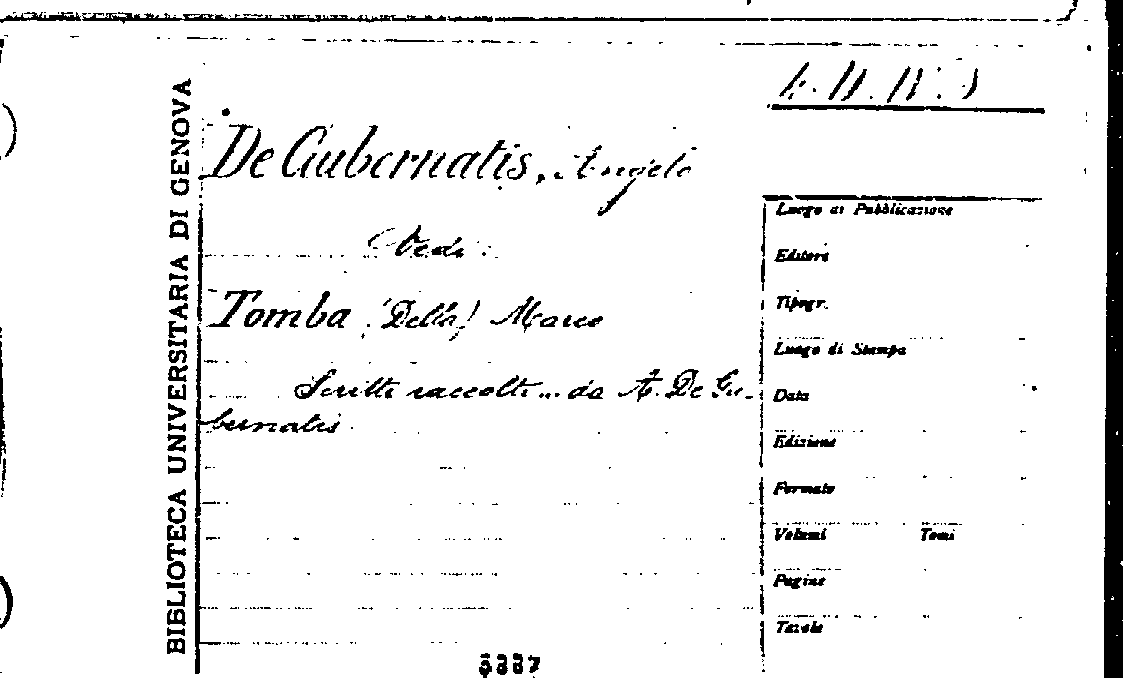 BIBLIOTECA UNIVERSITARIA DI GENOVA
De Gubernatis, Angelo
Vedi:
Tomba (Della) Marco
Scritti raccolti... da A. De Gu-
bernatis
Luogo di Pubblicazione
Editore
Tipogr.
Luogo di Stampa
Data
Edizione
Formato
Volumi Tomi
Pagine
Tavole